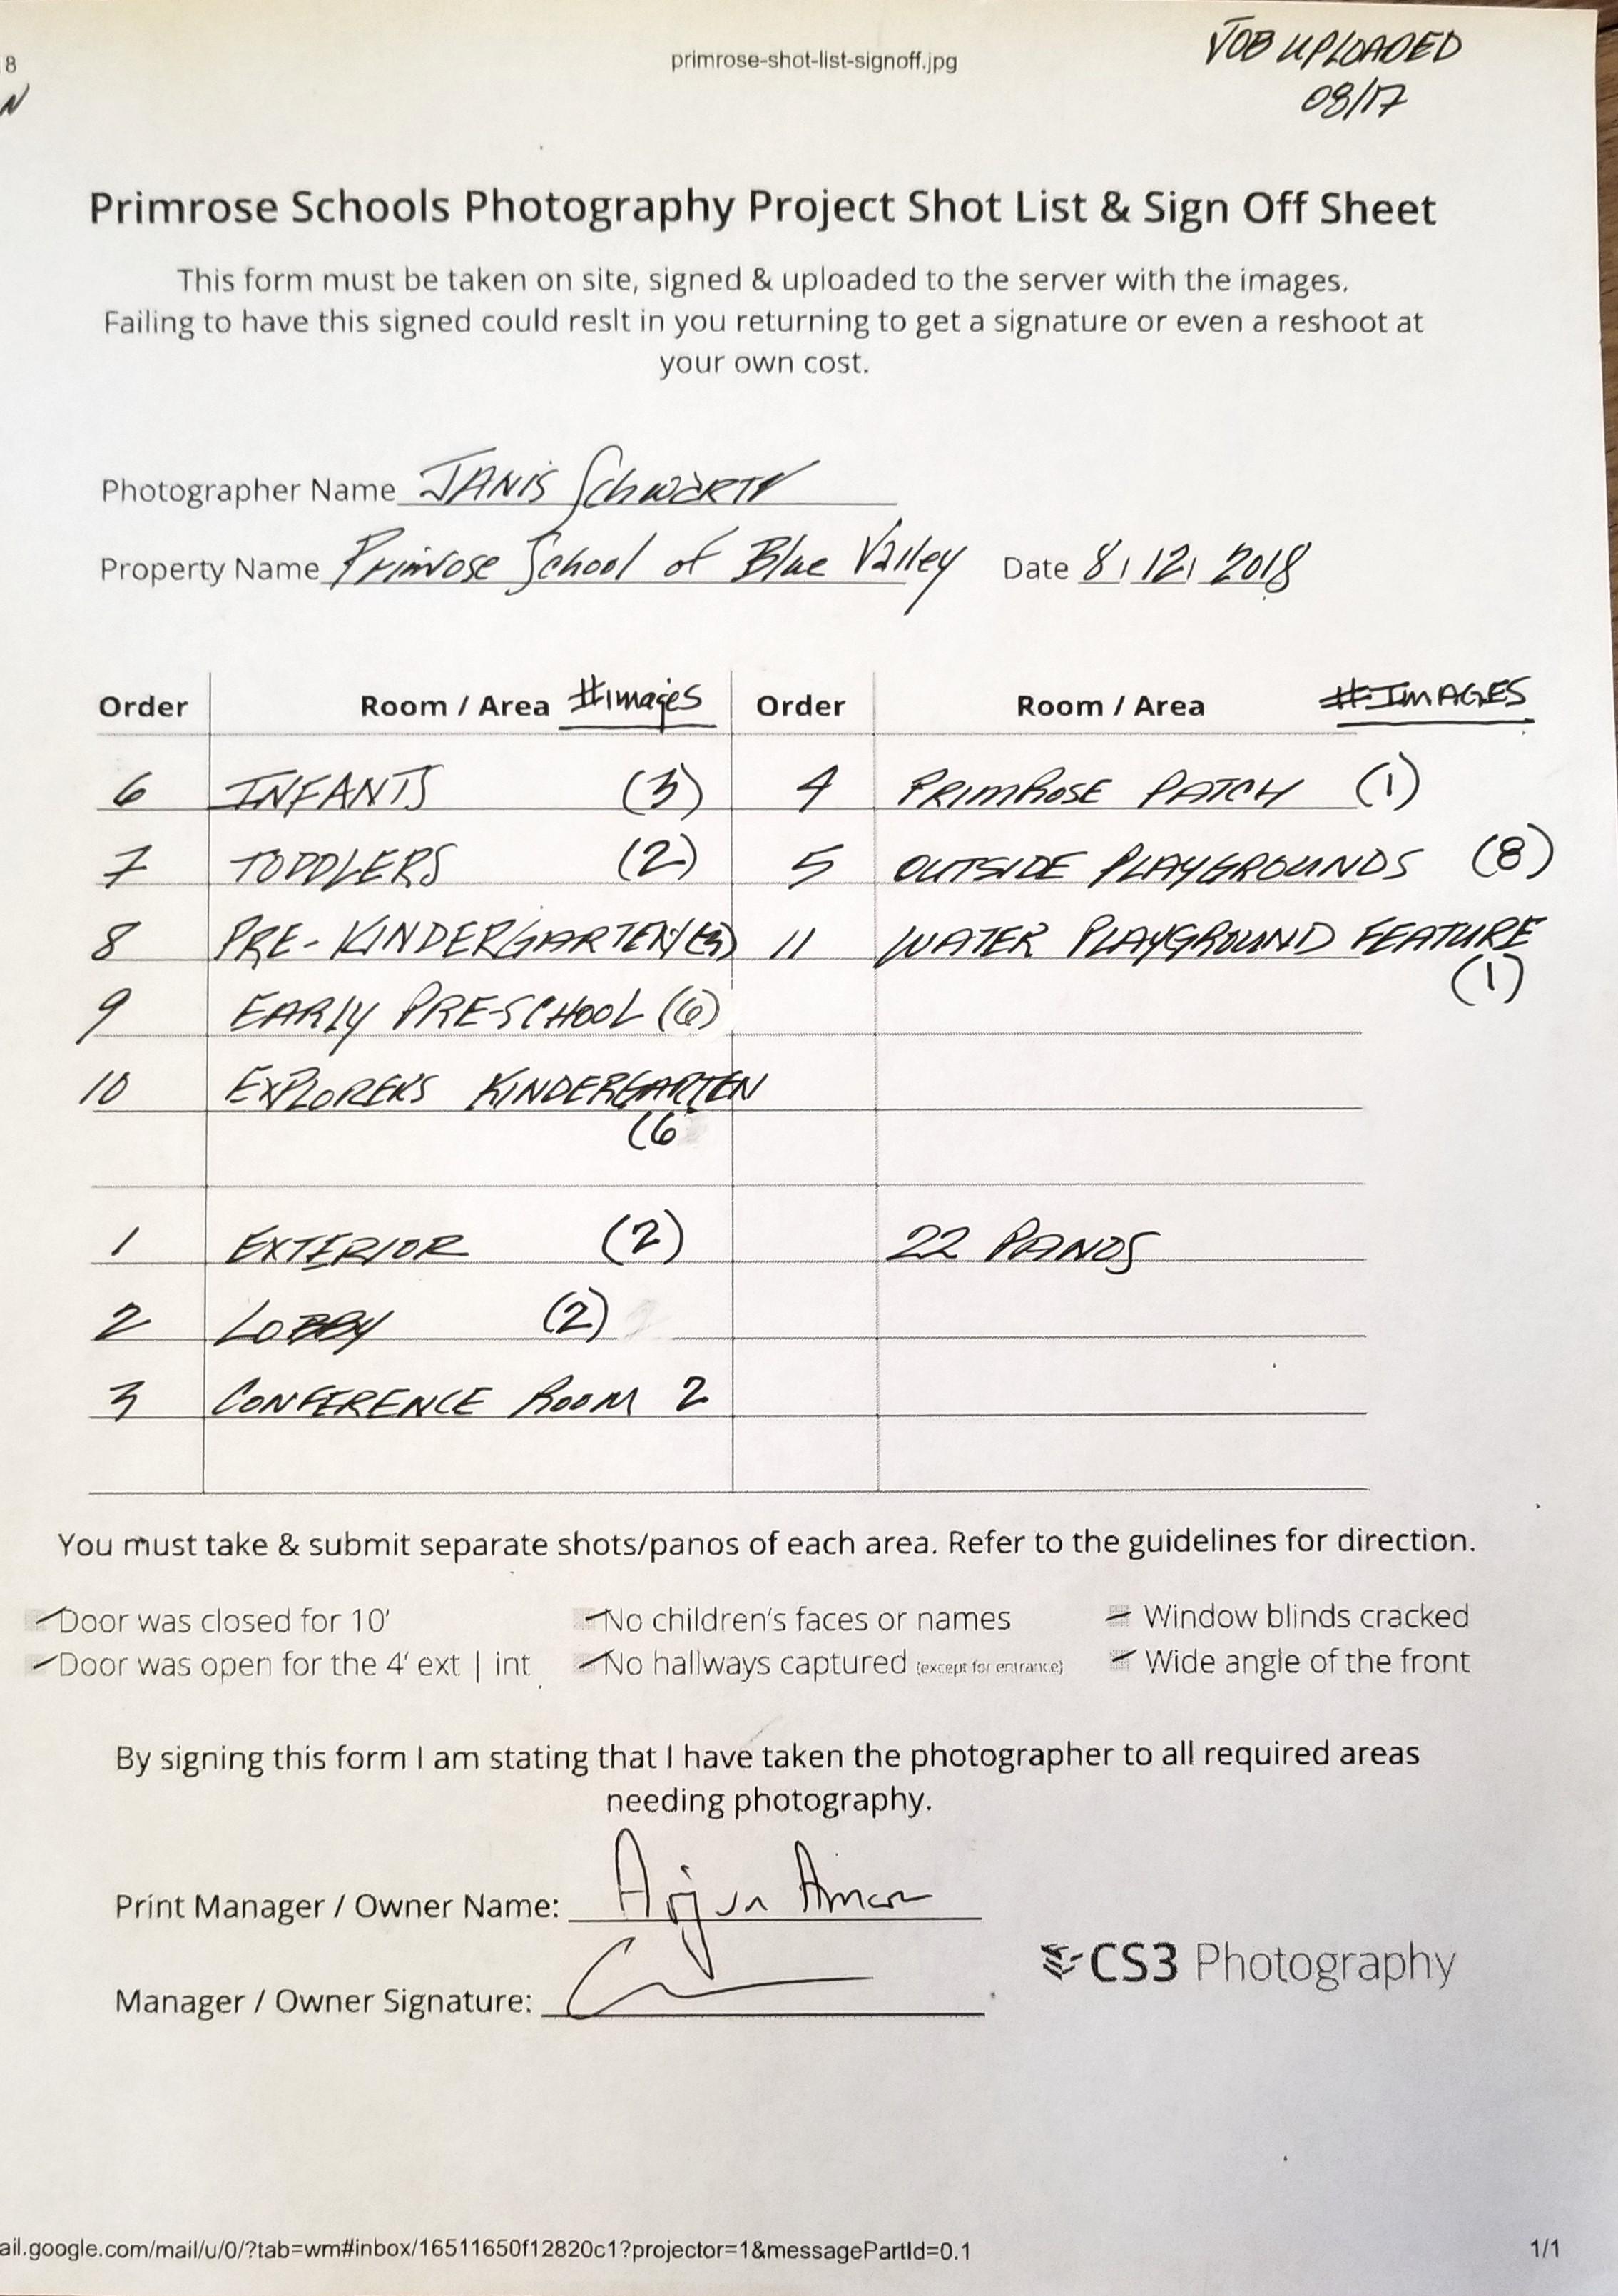 8
primrose-shot-list-signoff.jpg
JOB UPLOADED
N
08/17
Primrose Schools Photography Project Shot List & Sign Off Sheet
This form must be taken on site, signed & uploaded to the server with the images.
Failing to have this signed could reslt in you returning to get a signature or even a reshoot at
your own cost.
Photographer Name JANIS SchwARTZ
Property Name Primrose School of Blue Valley Date 8/12/2018
Order Room / Area #images Order Room / Area #IMAGES
6 INFANTS (3) 4 PRIMROSE PATCH (1)
7 TODDLERS (2) 5 OUTSIDE PLAYGROUNDS (8)
8 PRE-KINDERGARTEN (3) 11 WATER PLAYGROUND FEATURE
(1)
9 EARLY PRE-SCHOOL (6)
10 EXPLORERS KINDERGARTEN
(6
1 EXTERIOR (2) 22 PANOS
2 LOBBY (2)
3 CONFERENCE ROOM 2
You must take & submit separate shots/panos of each area. Refer to the guidelines for direction.
Door was closed for 10' No children's faces or names Window blinds cracked
Door was open for the 4' ext | int No hallways captured (except for entrance) Wide angle of the front
By signing this form I am stating that I have taken the photographer to all required areas
needing photography.
Print Manager / Owner Name: Arjun
CS3 Photography
Manager / Owner Signature:
ail.google.com/mail/u/0/?tab=wm#inbox/16511650f12820c1?projector=1&messagePartId=0.1 1/1